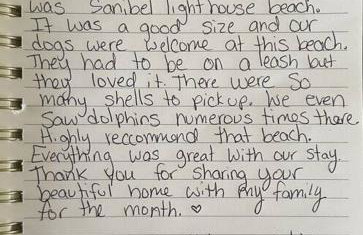 was Sanibel lighthouse beach.
It was a good size and our
dogs were welcome at this beach.
They had to be on a leash but
they loved it. There were so
many shells to pick up. We even
saw dolphins numerous times there
Highly reccommend that beach.
Everything was great with our stay.
Thank you for sharing your
beautiful home with my family
for the month. ♡